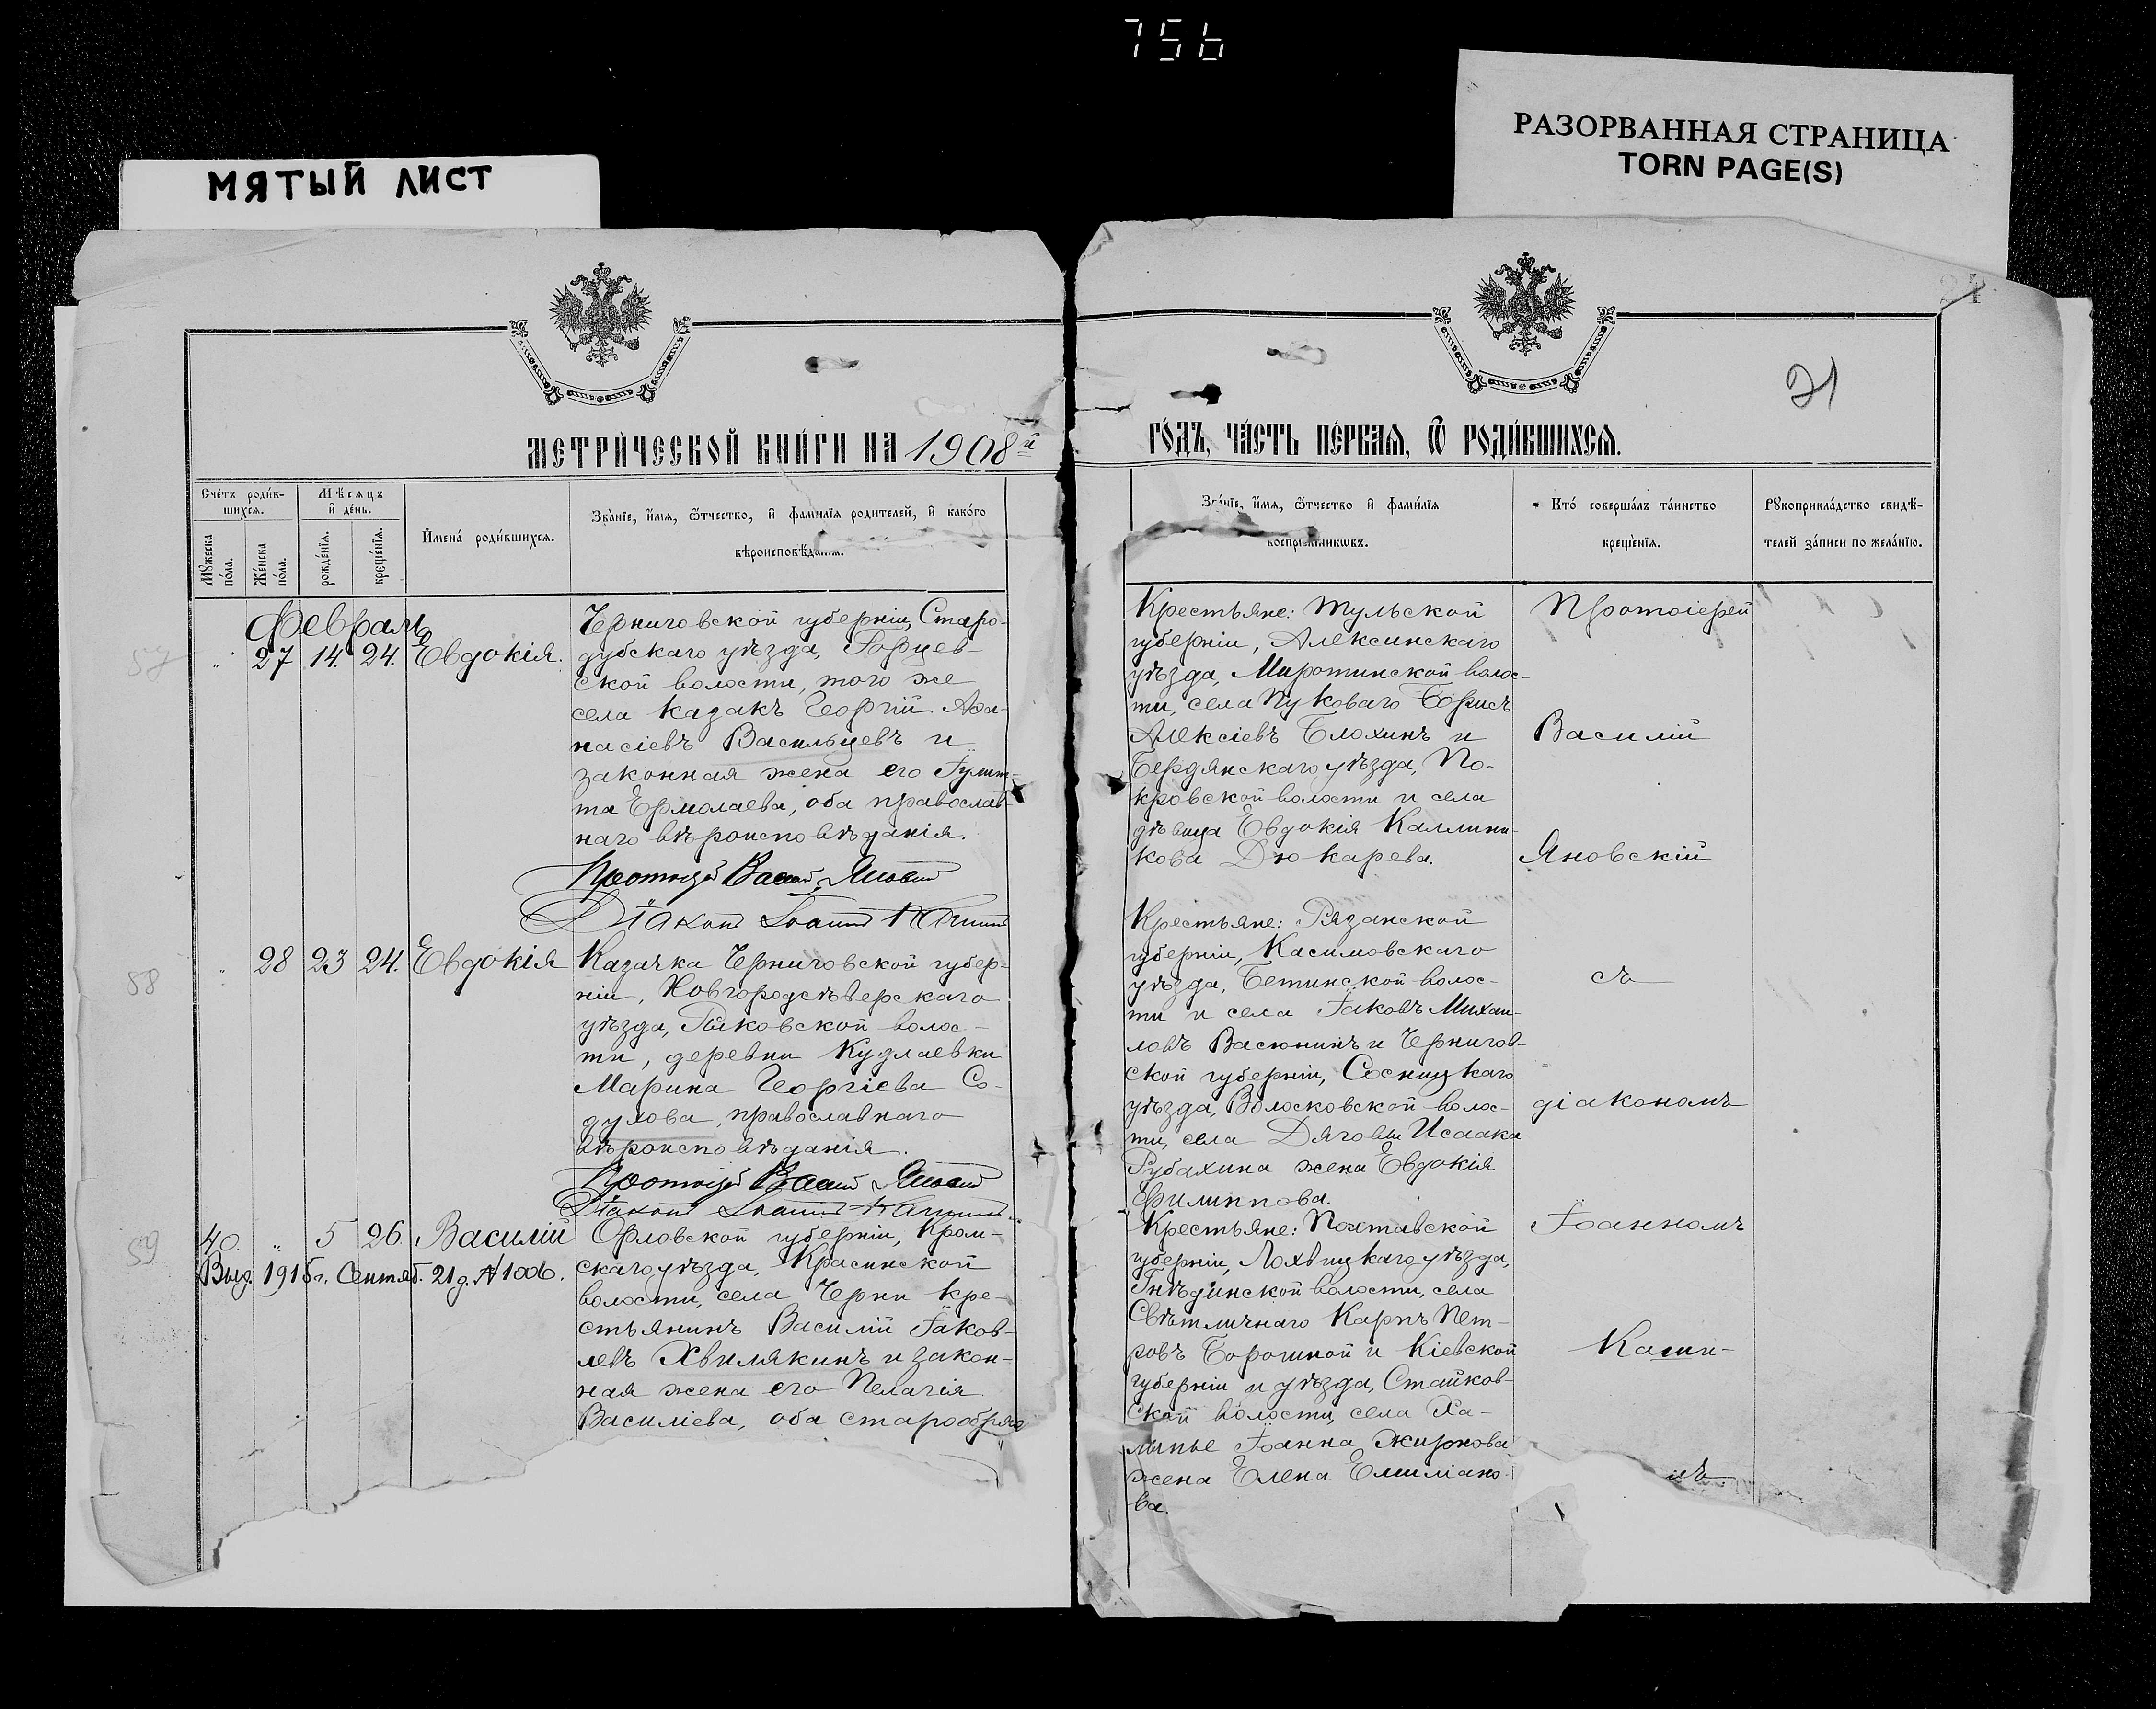 756
РАЗОРВАННАЯ СТРАНИЦА
TORN PAGE(S)
МЯТЫЙ ЛИСТ
24
21
МЕТРИ́ЧЕСКОЙ КНИ́ГИ НА 1908й
ГО́ДЪ, ЧА́СТЬ ПЕ́РВАЯ, Ѿ РОДИ́ВШИХСЯ.
Сче́тъ роди́в-
шихся.
Мѣсяцъ
и де́нь.
Мужеска
по́ла.
Же́нска
по́ла.
рожде́нїя.
креще́нїя.
Имена́ роди́вшихся.
Зва́нїе, и́мя, ѻ́тчество, и фами́лїя родителей, и како́го
вѣроисповѣданія.
Зва́нїе, и́мя, ѻ́тчество и фами́лїя
воспрїемникѡвъ.
Кто́ соверша́лъ та́инство
креще́нїя.
Рукоприкла́дство свидѣ́-
телей за́писи по жела́нїю.
Февраль
57 " 27 14. 24. Евдокія.
Черниговской губерніи, Старо-
дубскаго уѣзда, Горцев-
ской волости, того же
села казакъ Георгій Афа-
насіевъ Васильцевъ и
законная жена его Іулит-
та Ермолаева, оба православ-
наго вѣроисповѣданія.
Протоіерей Василій Яновскій
Діаконъ Іоаннъ
Крестьяне: Тульской
губерніи, Алексинскаго
уѣзда, Миротинской волос-
ти, села Пуковаго Борисъ
Алексіевъ Блохинъ и
Бердянскаго уѣзда, По-
кровской волости и села
дѣвица Евдокія Каллини-
кова Дюкарева.
Протоіерей
Василій
Яновскій
58 " 28 23 24. Евдокія
Казачка Черниговской губер-
ніи, Новгородсѣверскаго
уѣзда, Рыковской волос-
ти, деревни Кудлаевки
Марина Георгіева Со-
дулова, православнаго
вѣроисповѣданія.
Протоіерей Василій Яновскій
Діаконъ Іоаннъ
Крестьяне: Рязанской
губерніи, Касимовскаго
уѣзда, Бетинской волос-
ти и села Іаковъ Михаи-
ловъ Васюнинъ и Чернигов-
ской губерніи, Сосницкаго
уѣзда, Волосковской волос-
ти, села Дяговы Исаака
Рубахина жена Евдокія
Филиппова.
съ
діакономъ
59 40. " 5 26. Василій
Выд. 1915г. Сентяб. 21 д. № 1006.
Орловской губерніи, Кром-
скаго уѣзда, Красинской
волости, села Черни кре-
стьянинъ Василій Іаков-
левъ Хвилякинъ и закон-
ная жена его Пелагія
Василіева, оба старообряд
Крестьяне: Полтавской
губерніи, Лохвицкаго уѣзда,
Гнѣдинской волости, села
Свѣтличнаго Карпъ Пет-
ровъ Борошной и Кіевской
губерніи и уѣзда, Стайков-
ской волости, села Ха-
лѣпье Іоанна Жирнова
жена Елена Емиліано-
ва.
Іоанномъ
Каши-